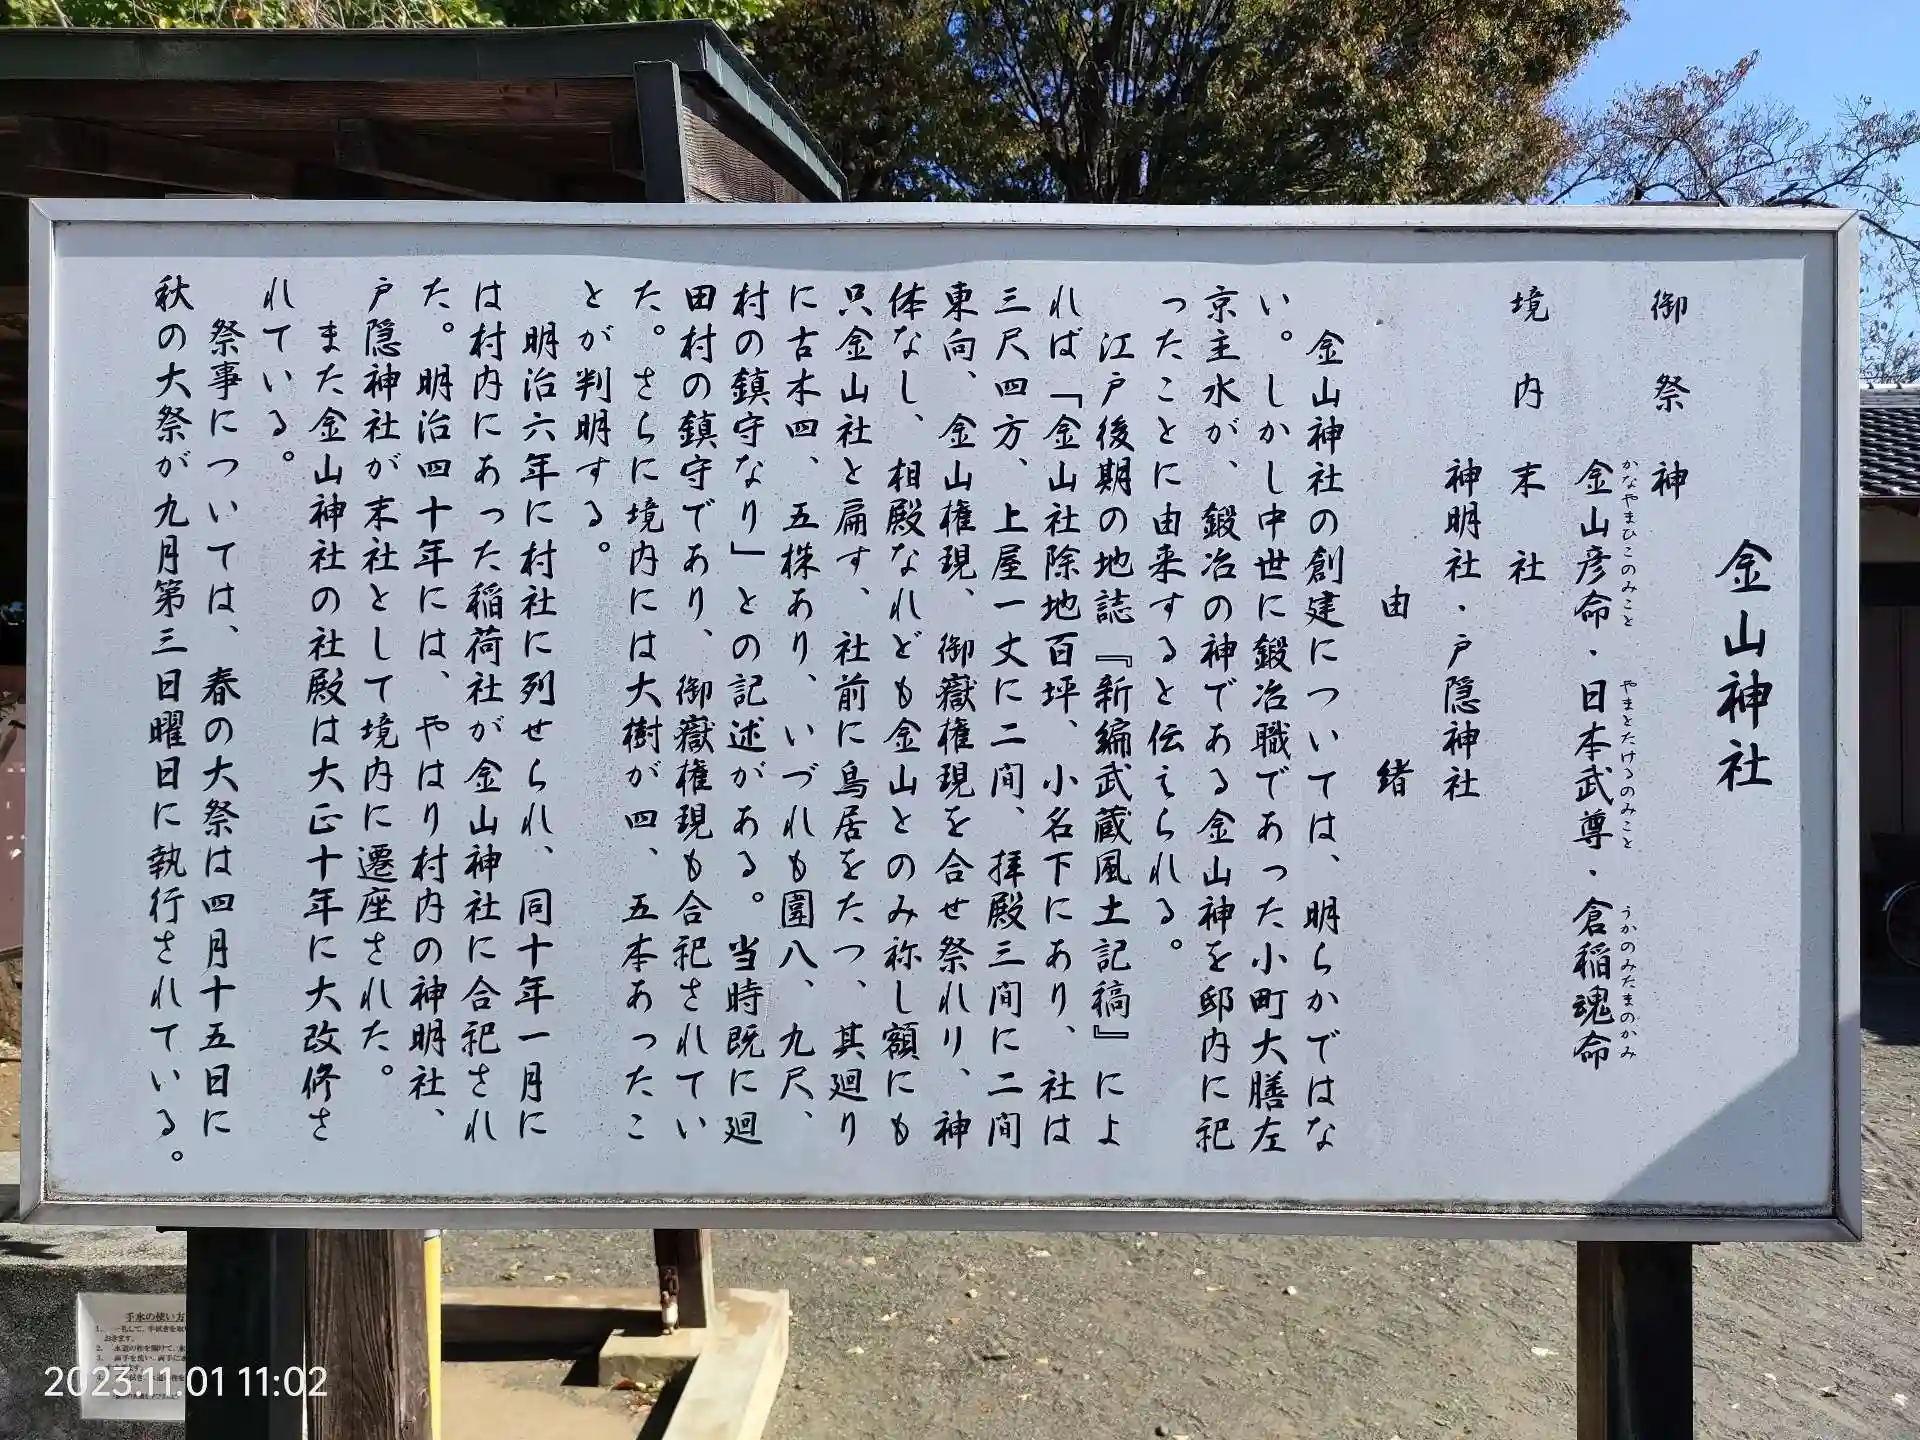 金山神社
御祭神
金山彦命・日本武尊・倉稲魂命
かなやまひこのみこと やまとたけるのみこと うかのみたまのかみ
境内末社
神明社・戸隠神社
由緒
金山神社の創建については、明らかではな
い。しかし中世に鍛冶職であった小町大膳左
京主水が、鍛冶の神である金山神を邸内に祀
ったことに由来すると伝えられる。
江戸後期の地誌『新編武蔵風土記稿』によ
れば「金山社除地百坪、小名下にあり、社は
三尺四方、上屋一丈に二間、拝殿三間に二間
東向、金山権現、御嶽権現を合せ祭れり、神
体なし、相殿なれども金山とのみ称し額にも
只金山社と扁す、社前に鳥居をたつ、其廻り
に古木四、五株あり、いづれも圍八、九尺、
村の鎮守なり」との記述がある。当時既に廻
田村の鎮守であり、御嶽権現も合祀されてい
た。さらに境内には大樹が四、五本あったこ
とが判明する。
明治六年に村社に列せられ、同十年一月に
は村内にあった稲荷社が金山神社に合祀され
た。明治四十年には、やはり村内の神明社、
戸隠神社が末社として境内に遷座された。
また金山神社の社殿は大正十年に大改修さ
れている。
祭事については、春の大祭は四月十五日に
秋の大祭が九月第三日曜日に執行されている。
手水の使い方
2023.11.01 11:02